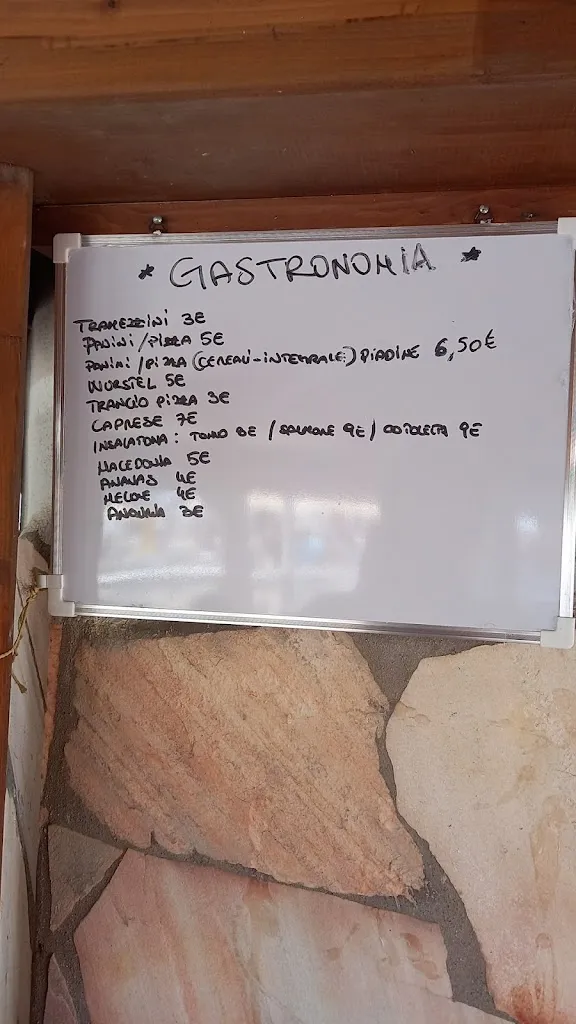 * GASTRONOMIA *
TRAMEZZINI 3€
PANINI/PIZZA 5€
PANINI/PIZZA (CEREALI-INTEGRALE) PIADINE 6,50€
WURSTEL 5€
TRANCIO PIZZA 3€
CAPRESE 7€
INSALATONA: TONNO 8€ / SALMONE 9€ / COTOLETTA 9€
MACEDONIA 5€
ANANAS 4€
MELONE 4€
ANGURIA 3€